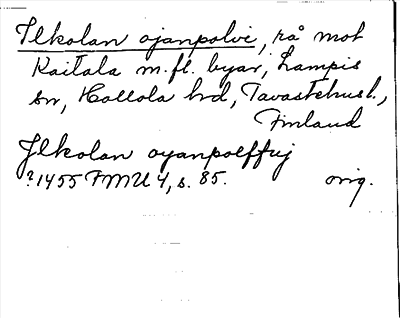 Ilkolan ojanpolvi, rå mot
Kaitala m.fl. byar, Lampis
sn, Hollola hd, Tavastehus l.,
Finland
Jlkolan oyanpolffwj
?1455 FMU 4, s. 85. orig.